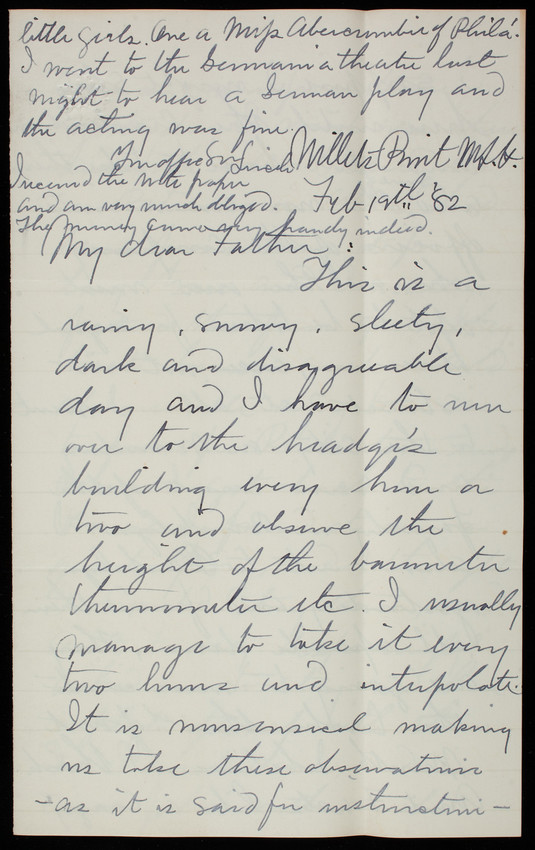 little girls. One a Miss Abercrombie of Phila.
I went to the Germania theatre last
night to hear a German play and
the acting was fine.
Your affec Son Lincoln
I received the note paper
and am very much obliged.
The money came very handy indeed.
Willets Point N.Y.H.
Feb 19th '82
My dear Father :
This is a
rainy, snowy, sleety,
dark and disagreeable
day and I have to run
over to the headqr's
building every hour or
two and observe the
height of the barometer
thermometer etc. I usually
manage to take it every
two hours and interpolate.
It is nonsensical making
us take these observations
- as it is said for instruction -